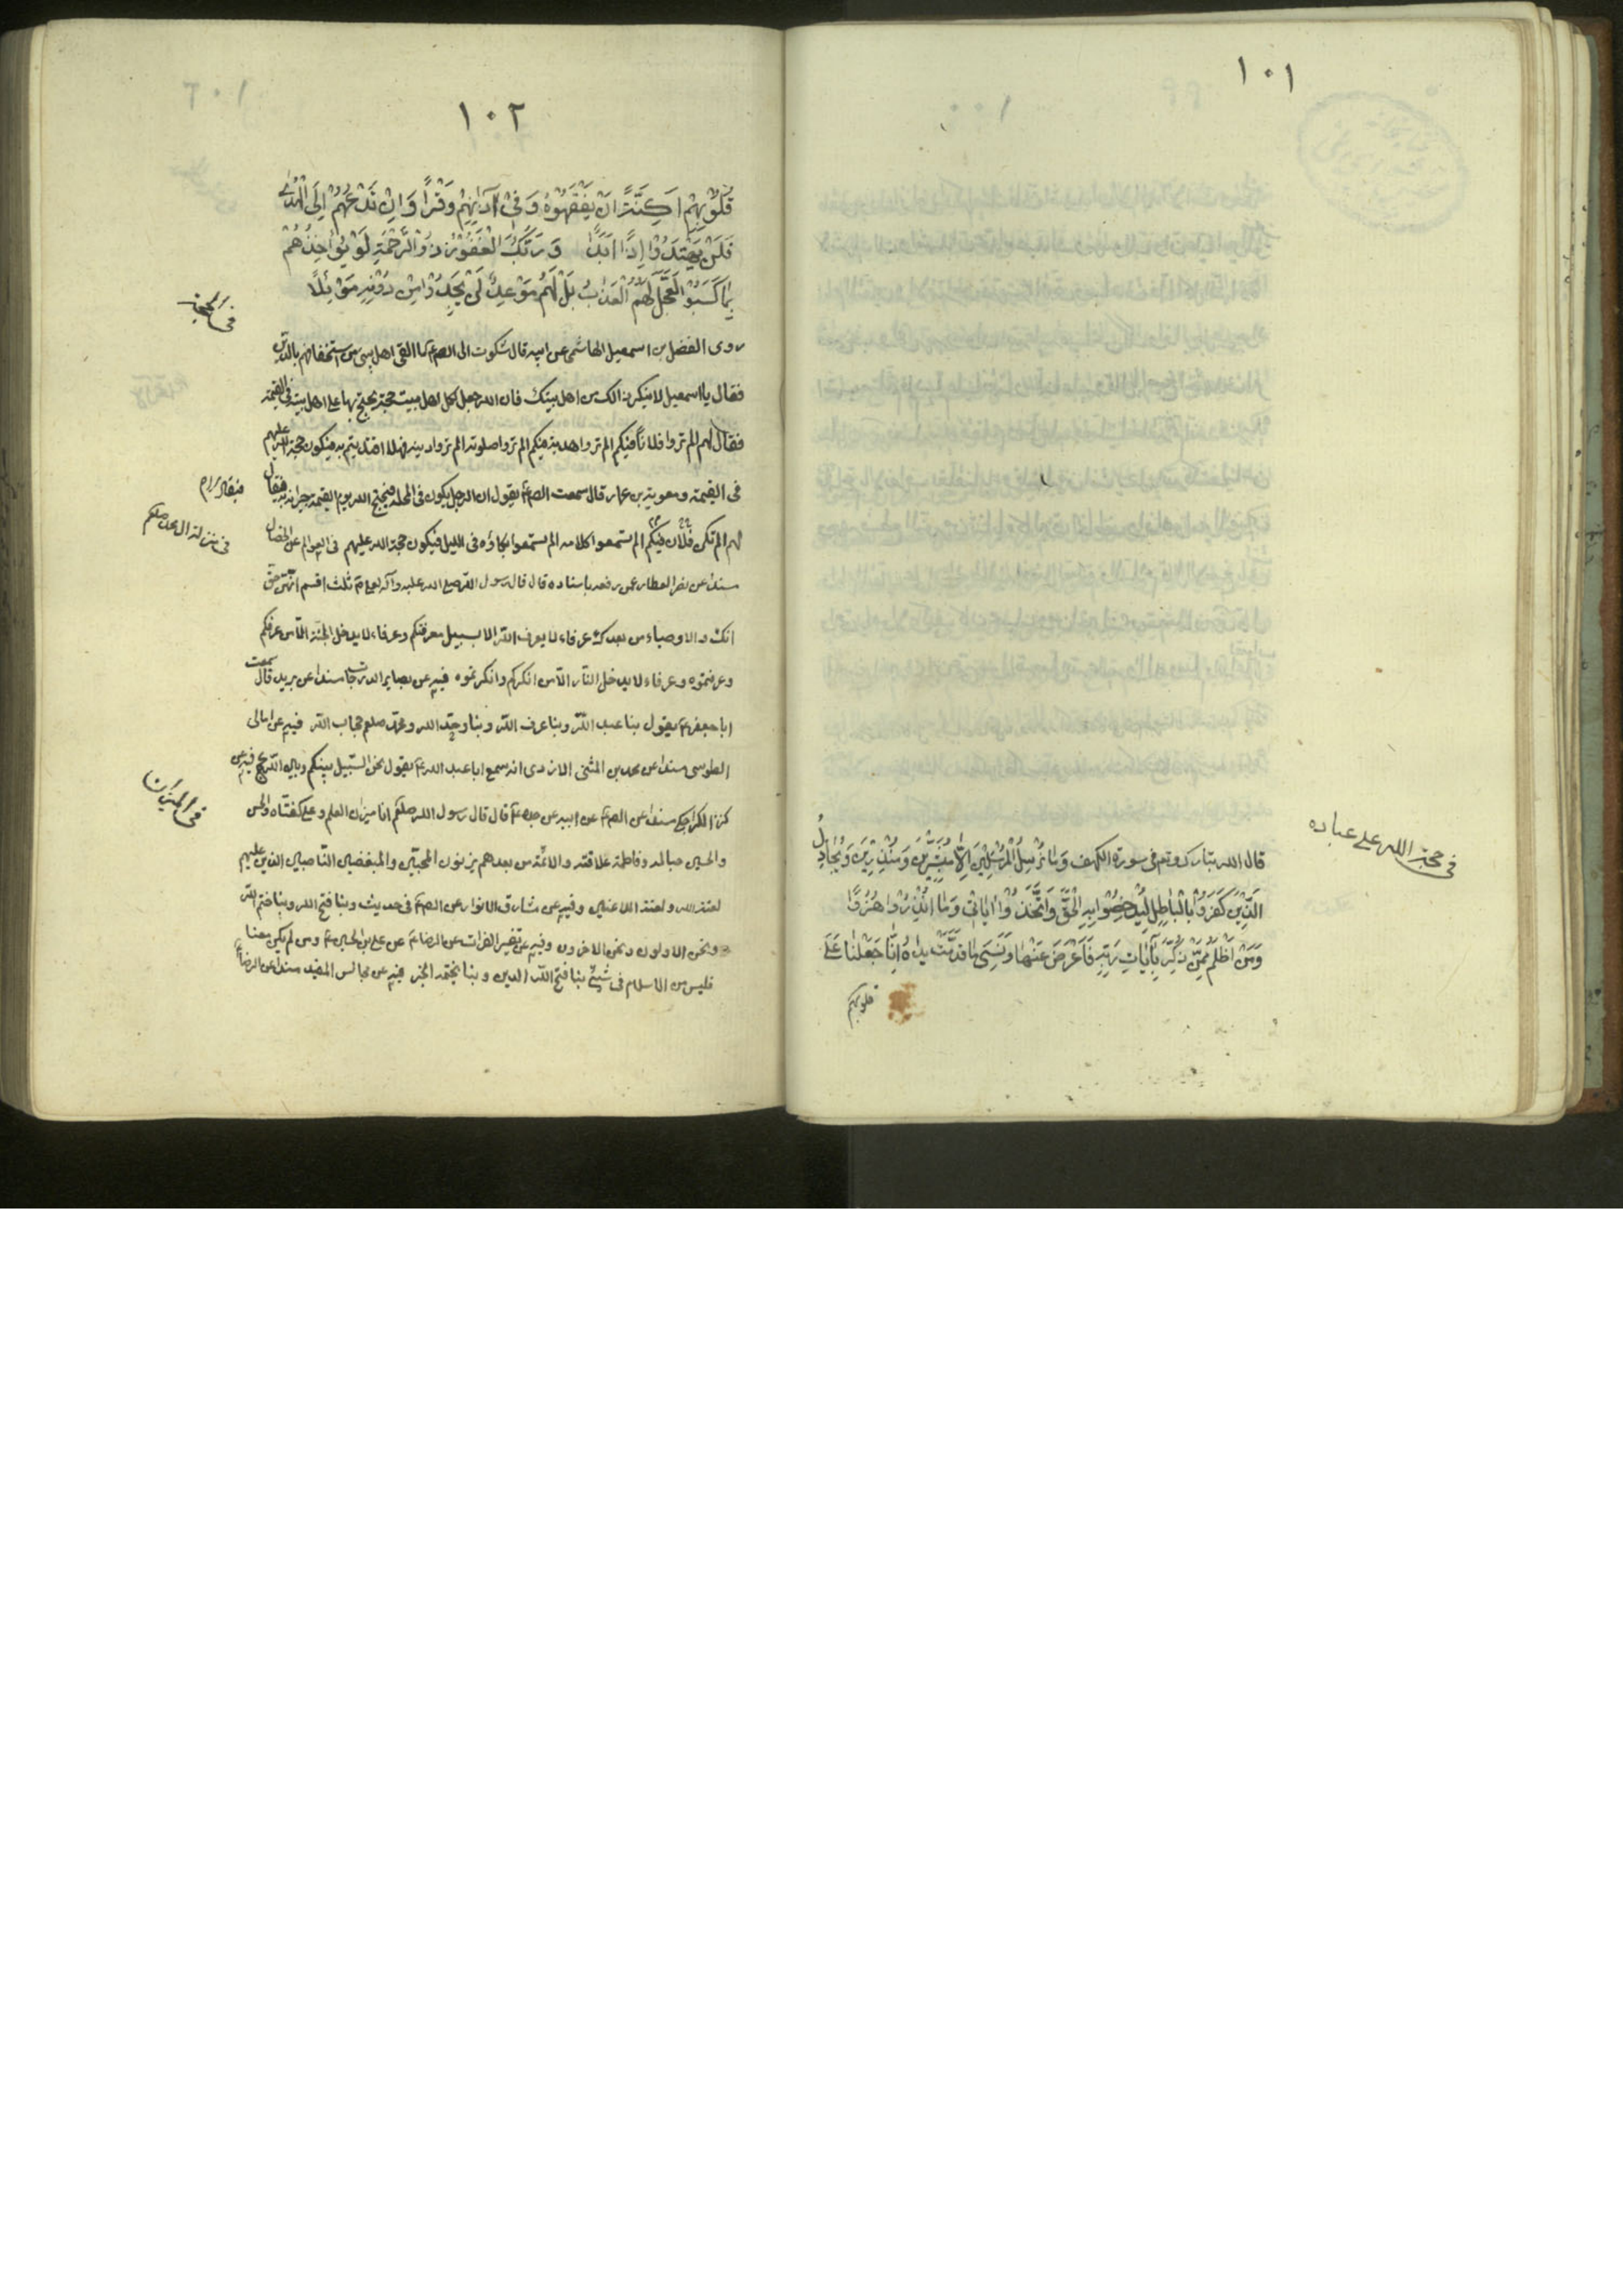 ١٠١
فى حجة الله على عباده
قال الله تبارك وتعم فى سورة الكهف وَمَا نُرْسِلُ الْمُرْسَلِينَ اِلَّا مُبَشِّرِينَ وَمُنْذِرِينَ وَيُجَادِلُ
الَّذِينَ كَفَرُوْا بِالْبَاطِلِ لِيُدْحِضُوْا بِهِ الْحَقَّ وَاتَّخَذُوْا اٰيَاتِى وَمَا اُنْذِرُوْا هُزُوًا
وَمَنْ اَظْلَمُ مِمَّنْ ذُكِّرَ بِاٰيَاتِ رَبِّهِ فَاَعْرَضَ عَنْهَا وَنَسِىَ مَا قَدَّمَتْ يداهُ اِنَّا جَعَلْنَا عَلَى
قلوبهم
١٠٢
قُلُوْبِهِمْ اَكِنَّةً اَنْ يَفْقَهُوْهُ وَفِىْ اٰذَانِهِمْ وَقْرًا وَاِنْ تَدْعُهُمْ اِلَى الْهُدٰى
فَلَنْ يَهْتَدُوْا اِذًا اَبَدًا وَرَبُّكَ الْغَفُوْرُ ذُوْ الرَّحْمَةِ لَوْ يُؤَاخِذُهُمْ
بِمَا كَسَبُوْا لَعَجَّلَ لَهُمُ الْعَذَابُ بَلْ لَهُمْ مَوْعِدٌ لَنْ يَجِدُوْا مِنْ دُوْنِهِ مَوْئِلًا
فى الحجة
روى الفضل بن اسمعيل الهاشمى عن ابيه قال شكوت الى الصم ع ما القى اهل بيتى من استخفافهم بالدين
فقال يا اسمعيل لا تنكر ذالك من اهل بيتك فان الله جعل لكل اهل بيت حجة يحتج بها على اهل بيته فى القيمة
فقال لهم الم تروا فلانًا فيكم الم تروا هديه فيكم الم تروا صلوته الم تروا دينه فهلا اقتديتم به فيكون حجة الله عليهم
فى القيمة ومعوية بن عمار قال سمعت الصم ع يقول ان الرجل يكون فى المحلة فيحتج الله يوم القيمة جيرانه به فيقال
لهم الم تكن فلان فيكم الم تسمعوا كلامه الم تسمعوا بكاؤه فى الليل فيكون حجة الله عليهم فى العوالم عن الخصال
فى منزلة ال محمد صلعم
مسندا عن نصر العطار عمن رفعه باسناده قال قال رسول الله صلى الله عليه وآله لعلى ع ثلث اقسم انهن حق
انك والاوصياء من بعدك عرفاء لا يعرف الله الا بسبيل معرفتكم وعرفاء لا يدخل الجنة الا من عرفكم
وعرفتموه وعرفاء لا يدخل النار الا من انكركم وانكرتموه فيه عن بصاير الدرجات مسندا عن بريد قال سمعت
ابا جعفر ع يقول بنا عبد الله وبنا عرف الله وبنا وحد الله ومحمد صلعم حجاب الله فيه عن امالى
الطوسى مسندا عن محمد بن المثنى الازدى انه سمع ابا عبد الله ع يقول نحن السبيل بينكم وبين الله ع ج فيه عن
فى الميزان
كنز الكراجكى مسندا عن الصم ع عن ابيه عن جده ع قال قال رسول الله صلعم انا ميزان العلم وعلى كفتاه والحسن
والحسين حباله وفاطمة علاقته والائمة من بعدهم يزنون المحبين والمبغضين الناصبين الذين عليهم
لعنة الله ولعنة اللاعنين وفيه عن مشارق الانوار عن الصم ع فى حديث وبنا فتح الله وبنا ختم الله
ونحن الاولون ونحن الاخرون وفيه عن تفسير الفرات عن الرضا ع عن على بن الحسين ع ومن لم يكن معنا
فليس من الاسلام فى شيئ بنا فتح الله الدين وبنا يختمه الخبر فيه عن مجالس المفيد مسندا عن الرضا ع